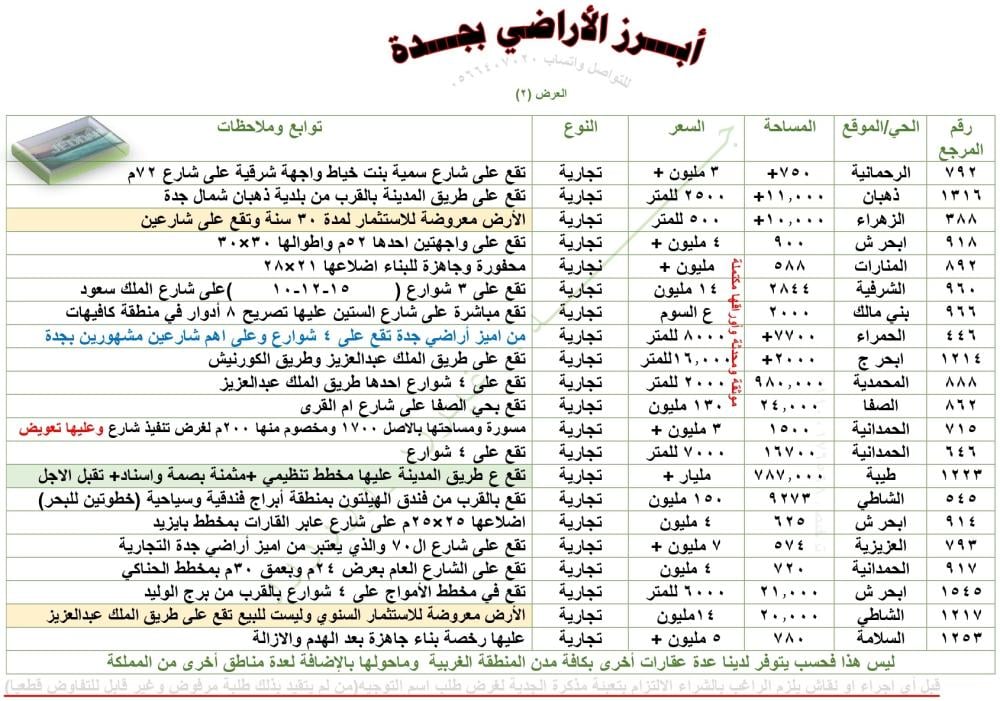 أبرز الأراضي بجدة
للتواصل واتساب ٠٥٦٦٤٠٧٠٢٠
العرض (٢)
رقم المرجع الحي/الموقع المساحة السعر النوع توابع وملاحظات
٧٩٢ الرحمانية ٧٥٠+ ٣ مليون + تجارية تقع على شارع سمية بنت خياط واجهة شرقية على شارع ٧٢م
١٣١٦ ذهبان ١١,٠٠٠+ ٢٥٠٠ للمتر تجارية تقع على طريق المدينة بالقرب من بلدية ذهبان شمال جدة
٣٨٨ الزهراء ١٠,٠٠٠+ ٥٠٠ للمتر تجارية الأرض معروضة للاستثمار لمدة ٣٠ سنة وتقع على شارعين
٩١٨ ابحر ش ٩٠٠ ٤ مليون + تجارية تقع على واجهتين احدها ٥٢م واطوالها ٣٠×٣٠
٨٩٢ المنارات ٥٨٨ مليون + تجارية محفورة وجاهزة للبناء اضلاعها ٢١×٢٨
٩٦٠ الشرفية ٢٨٤٤ ١٤ مليون تجارية تقع على ٣ شوارع ( ١٥-١٢-١٠ )على شارع الملك سعود
٩٦٦ بني مالك ٢٠٠٠ ع السوم تجارية تقع مباشرة على شارع الستين عليها تصريح ٨ أدوار في منطقة كافيهات
٤٤٦ الحمراء ٧٧٠٠+ ٨٠٠٠ للمتر تجارية من اميز أراضي جدة تقع على ٤ شوارع وعلى اهم شارعين مشهورين بجدة
١٢١٤ ابحر ج ٢٠٠٠+ ١٦,٠٠٠للمتر تجارية تقع على طريق الملك عبدالعزيز وطريق الكورنيش
٨٨٨ المحمدية ٩٨٠,٠٠٠ ٢٠٠٠ للمتر تجارية تقع على ٤ شوارع احدها طريق الملك عبدالعزيز
٨٦٢ الصفا ٢٤,٠٠٠ ١٣٠ مليون تجارية تقع بحي الصفا على شارع ام القرى
٧١٥ الحمدانية ١٥٠٠ ٣ مليون + تجارية مسورة ومساحتها بالاصل ١٧٠٠ ومخصوم منها ٢٠٠م لغرض تنفيذ شارع وعليها تعويض
٦٤٦ الحمدانية ١٦٧٠٠ ٧٠٠٠ للمتر تجارية تقع على ٤ شوارع
١٢٢٣ طيبة ٧٨٧,٠٠٠ مليار + تجارية تقع ع طريق المدينة عليها مخطط تنظيمي +مثمنة بصمة واسناد+ تقبل الاجل
٥٤٥ الشاطي ٩٢٧٣ ١٥٠ مليون تجارية تقع بالقرب من فندق الهيلتون بمنطقة أبراج فندقية وسياحية (خطوتين للبحر)
٩١٤ ابحر ش ٦٢٥ ٤ مليون تجارية اضلاعها ٢٥×٢٥م على شارع عابر القارات بمخطط بايزيد
٧٩٣ العزيزية ٥٧٤ ٧ مليون + تجارية تقع على شارع ال٧٠ والذي يعتبر من اميز أراضي جدة التجارية
٩١٧ الحمدانية ٧٢٠ ٤ مليون تجارية تقع على الشارع العام بعرض ٢٤م وبعمق ٣٠م بمخطط الحناكي
١٥٤٥ ابحر ش ٢١,٠٠٠ ٦٠٠٠ للمتر تجارية تقع في مخطط الأمواج على ٤ شوارع بالقرب من برج الوليد
١٢١٧ الشاطي ٢٠,٠٠٠ ١٤مليون تجارية الأرض معروضة للاستثمار السنوي وليست للبيع تقع على طريق الملك عبدالعزيز
١٢٥٣ السلامة ٧٨٠ ٥ مليون + تجارية عليها رخصة بناء جاهزة بعد الهدم والازالة
موثقة ومحدثة وأوراقها مكتملة
ليس هذا فحسب يتوفر لدينا عدة عقارات أخرى بكافة مدن المنطقة الغربية وماحولها بالإضافة لعدة مناطق أخرى من المملكة
قبل أي اجراء او نقاش يلزم الراغب بالشراء الالتزام بتعبئة مذكرة الجدية لغرض طلب اسم التوجيه(من لم يتقيد بذلك طلبة مرفوض وغير قابل للتفاوض قطعيا)